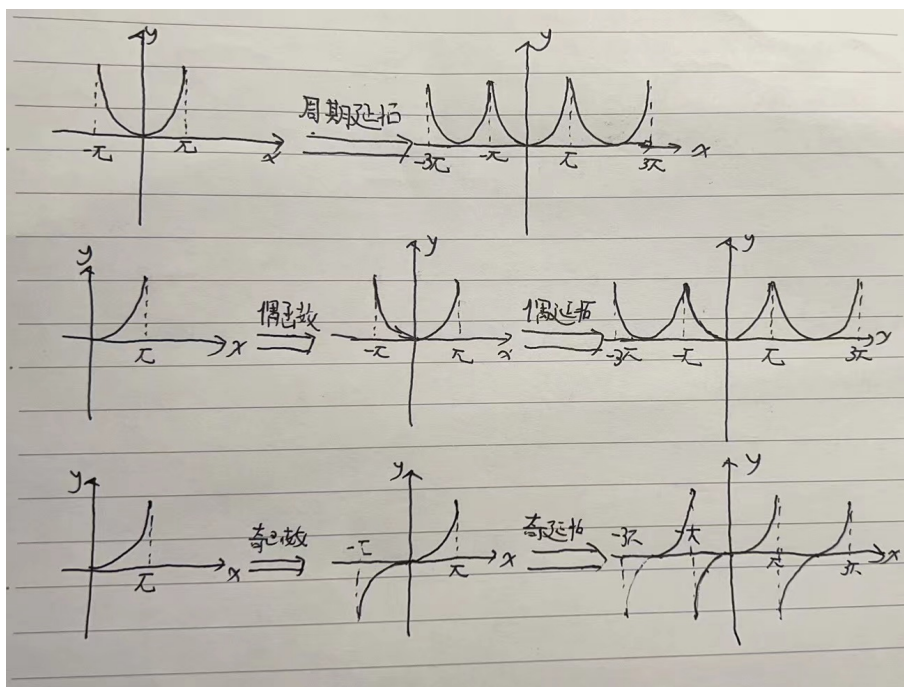 y
-π π x
周期延拓
y
-3π -π π 3π x
y
π x
偶函数
y
-π π x
偶延拓
y
-3π -π π 3π x
y
π x
奇函数
y
-π π x
奇延拓
y
-3π -π π 3π x